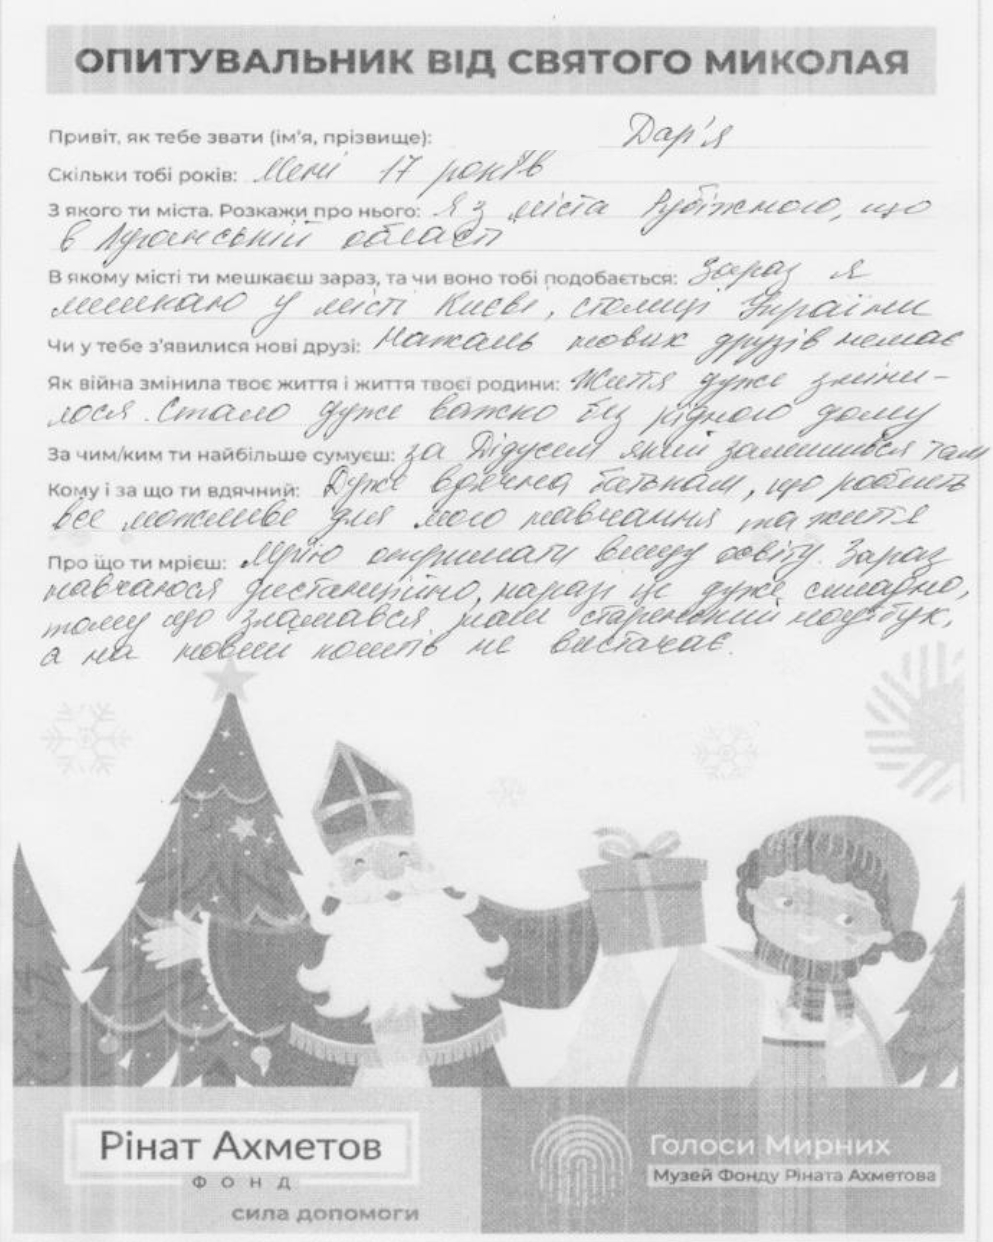 ОПИТУВАЛЬНИК ВІД СВЯТОГО МИКОЛАЯ
Привіт, як тебе звати (ім'я, прізвище): Дар'я
Скільки тобі років: Мені 17 років
З якого ти міста. Розкажи про нього: Я з міста Рубіжного, що
в Луганській області
В якому місті ти мешкаєш зараз, та чи воно тобі подобається: Зараз я
мешкаю у місті Києві, столиці України
Чи у тебе з'явилися нові друзі: Нажаль нових друзів немає
Як війна змінила твоє життя і життя твоєї родини: Життя дуже зміни-
лося. Стало дуже важко без рідного дому
За чим/ким ти найбільше сумуєш: за Дідусем який залишився там
Кому і за що ти вдячний: Дуже вдячна батькам, що роблять
все можливе для мого навчання та життя
Про що ти мрієш: Мрію отримати вищу освіту. Зараз
навчаюся дистанційно, наразі це дуже складно,
тому що зламався мій старенький ноутбук,
а на новий коштів не вистачає.
Рінат Ахметов
ФОНД
сила допомоги
Голоси Мирних
Музей Фонду Ріната Ахметова